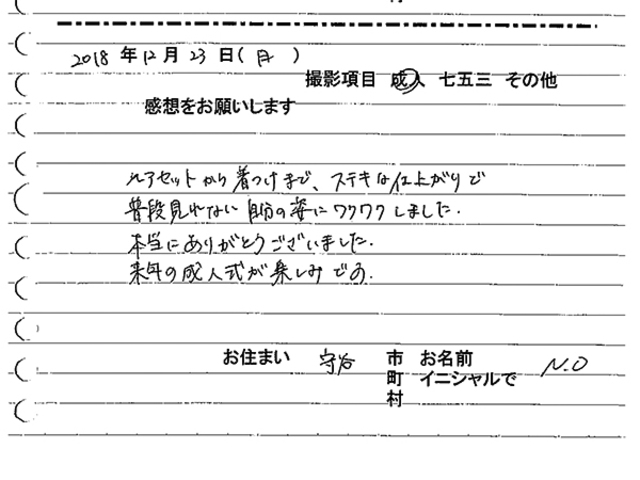 2018 年 12 月 23 日( 日 )
撮影項目 成人 七五三 その他
感想をお願いします
ヘアセットから着つけまで、ステキな仕上がりで
普段見れない自分の姿にワクワクしました.
本当にありがとうございました.
来年の成人式が楽しみです.
お住まい 守谷 市 お名前
町 イニシャルで N.O
村